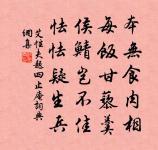 本無食肉相
每飯甘藜羹
侯鯖豈不佳
怯怯疑生兵
艾性夫題四止庵詞典
網集